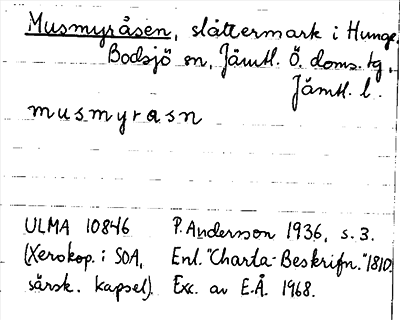 Musmyråsen, slåttermark i Hunge,
Bodsjö sn, Jämtl. Ö. doms. tg,
Jämtl. l.
musmyrasn
ULMA 10846 P. Andersson 1936, s. 3.
(Xerokop. i SOA, Enl. "Charta-Beskrifn." 1810.
särsk. kapsel). Exc. av E.Å. 1968.